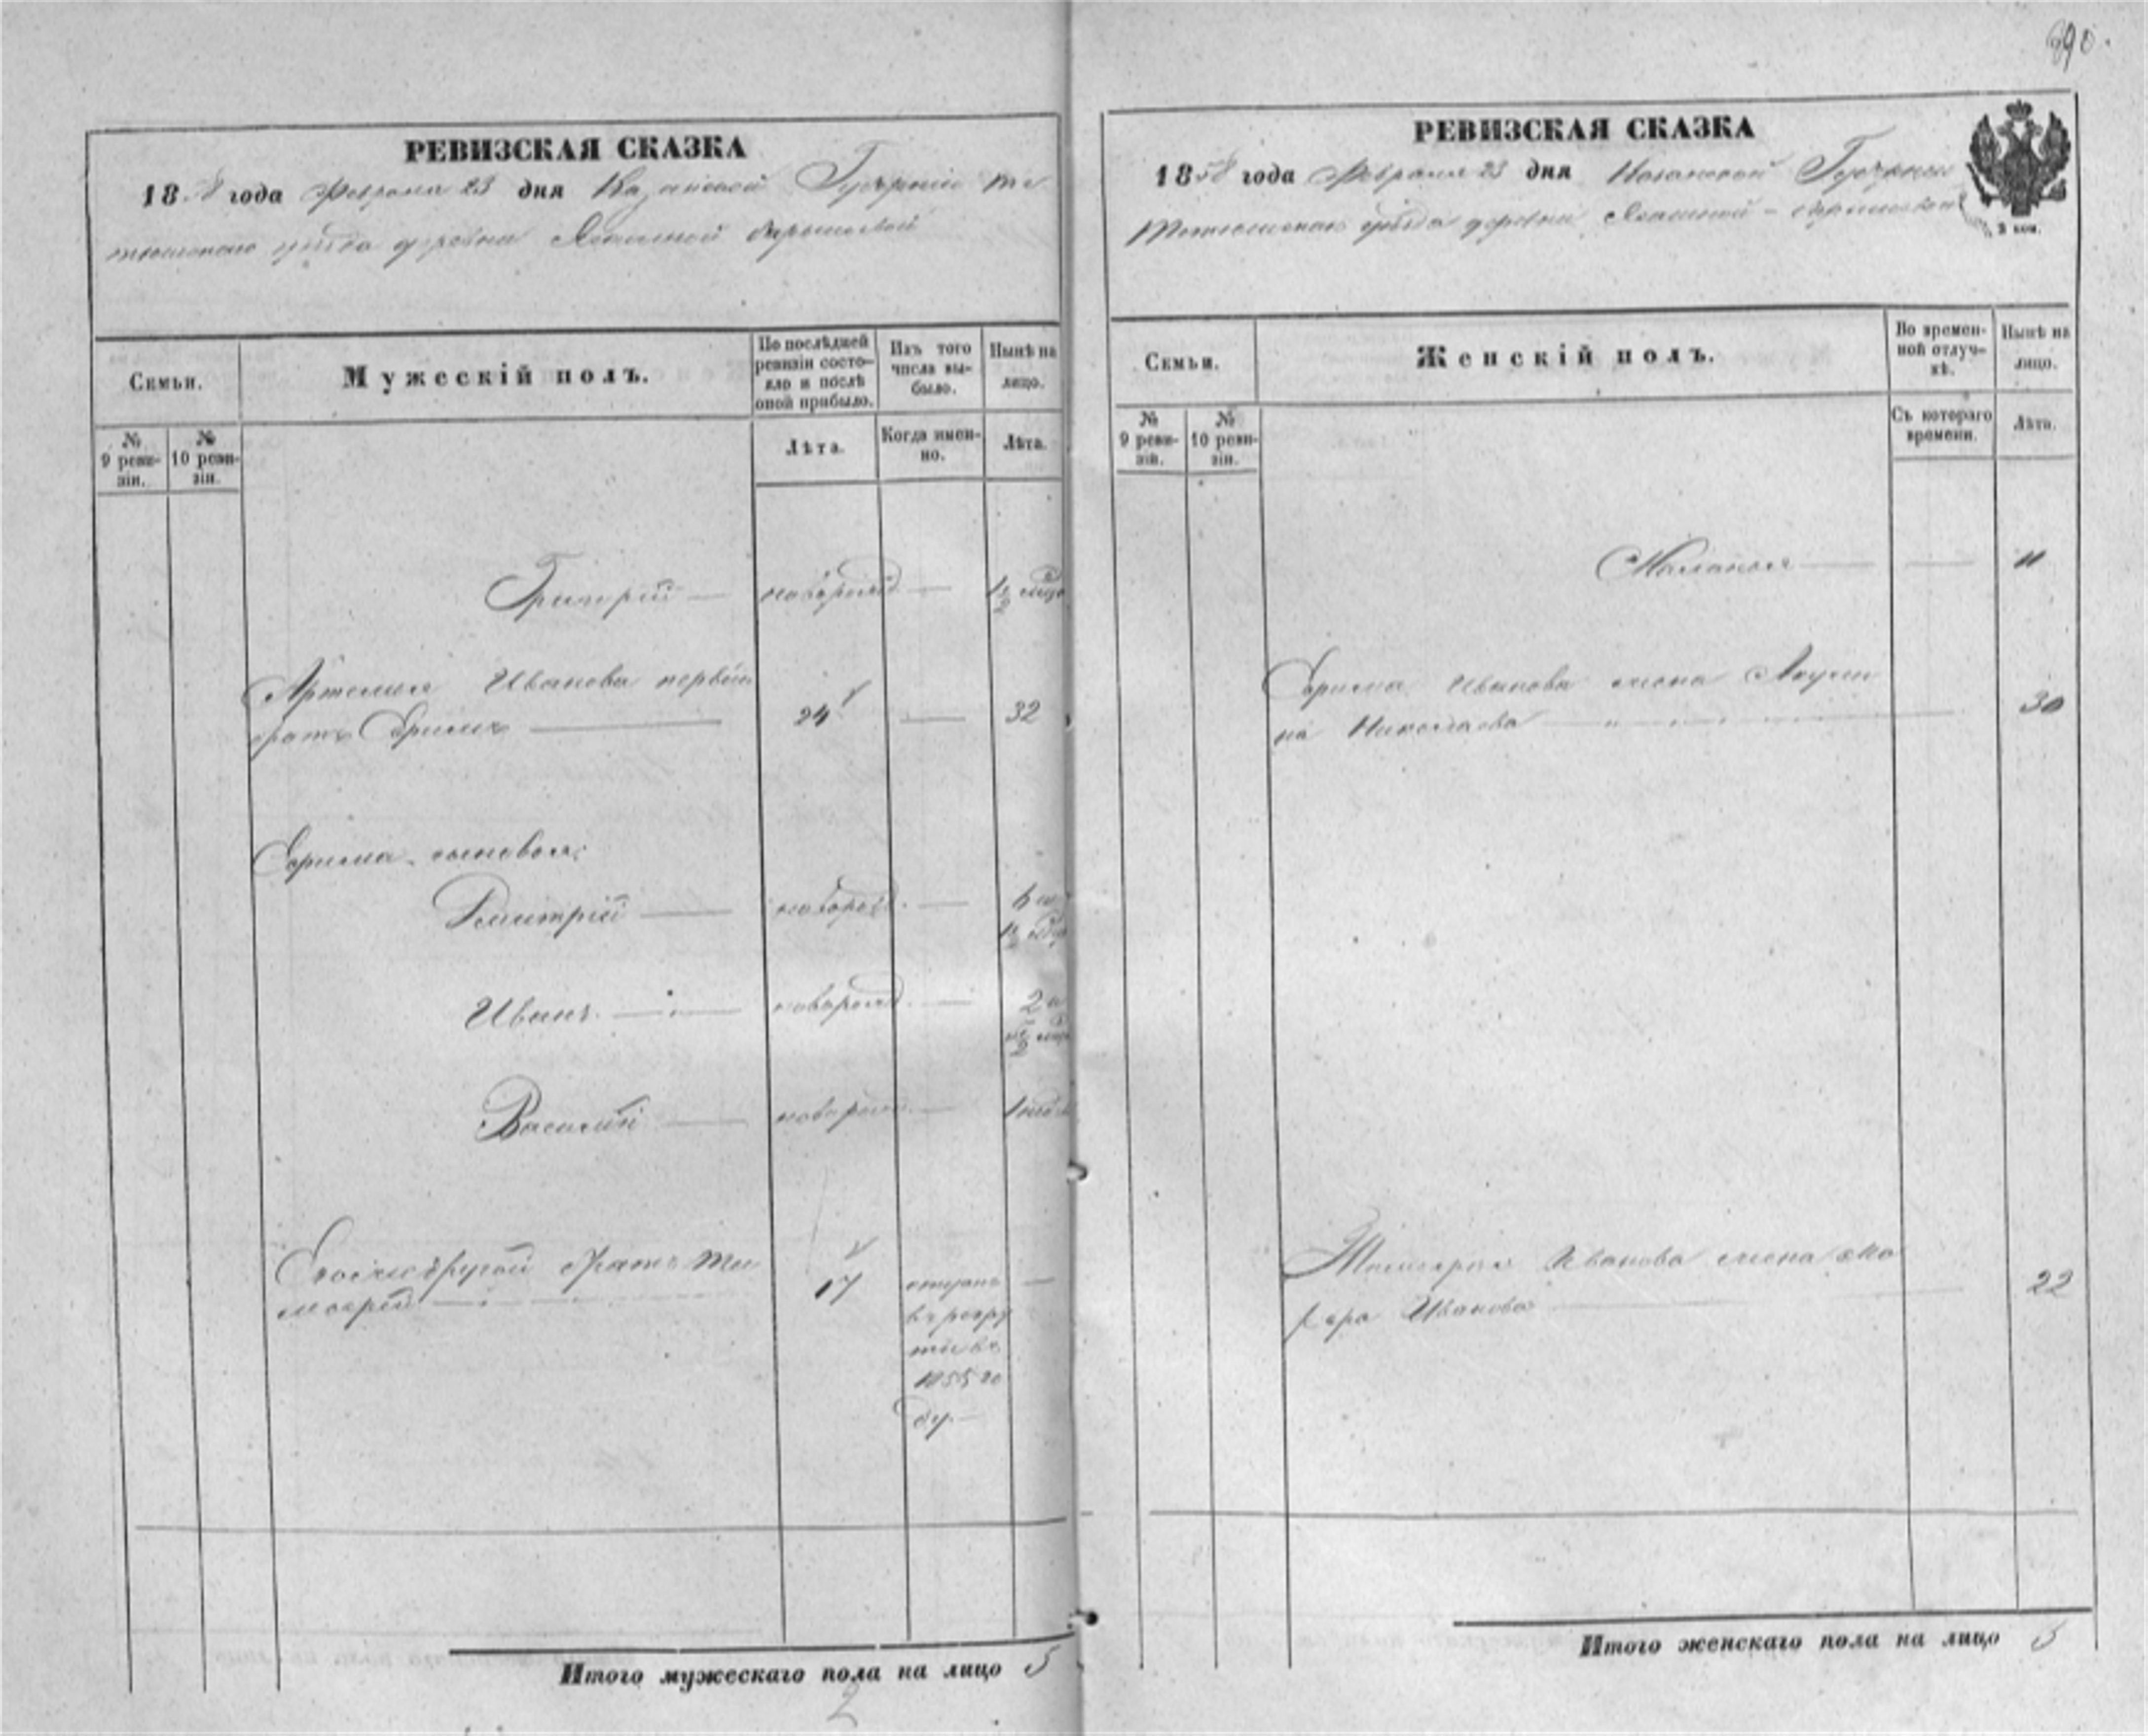 890.
РЕВИЗСКАЯ СКАЗКА
18 8 года Февраля 23 дня Казанской Губерніи Те
тюшскаго уѣзда деревни
Семьи.
Мужескій полъ.
По послѣдней ревизіи состояло и послѣ оной прибыло.
Изъ того числа выбыло.
Нынѣ на лицо.
№ 9 ревизіи.
№ 10 ревизіи.
Лѣта.
Когда именно.
Лѣта.
Григорій — новорожд — 1/2 года
Артемья Иванова первый
братъ Ефимъ — 24 — 32
Ефима сыновья:
Дмитрій — новорожд. — 6 и
1/2 году
Иванъ — новорожд. — 2 и
Василій — новорожд — 1 нед
другой братъ Ти
мофей — 17 —
отданъ
въ рекру
ты въ
1855 го
ду. —
Итого мужескаго пола на лицо 5
2
РЕВИЗСКАЯ СКАЗКА
1858 года Февраля 23 дня Казанской Губерніи
Тетюшскаго уѣзда деревни
3 коп.
Семьи.
Женскій полъ.
Во временной отлучкѣ.
Нынѣ на лицо.
№ 9 ревизіи.
№ 10 ревизіи.
Съ котораго времени.
Лѣта.
Маланья — — 11
Ефима Иванова жена Акули
на Николаева — 30
Тимофея Иванова жена
Иванова — 22
Итого женскаго пола на лицо 3